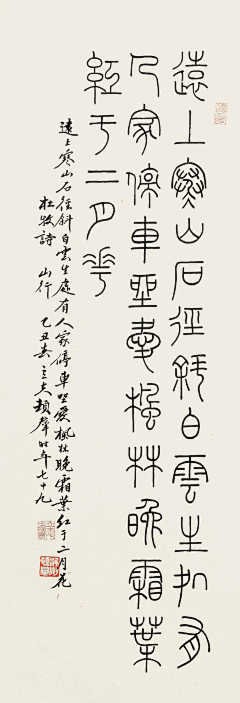 遠上寒山石徑斜白雲生処有
人家停車坐愛楓林晚霜葉
紅于二月花
遠上寒山石徑斜白雲生處有人家停車坐愛楓林晚霜葉紅于二月花
杜牧詩 山行 乙丑春立夫時年七十九